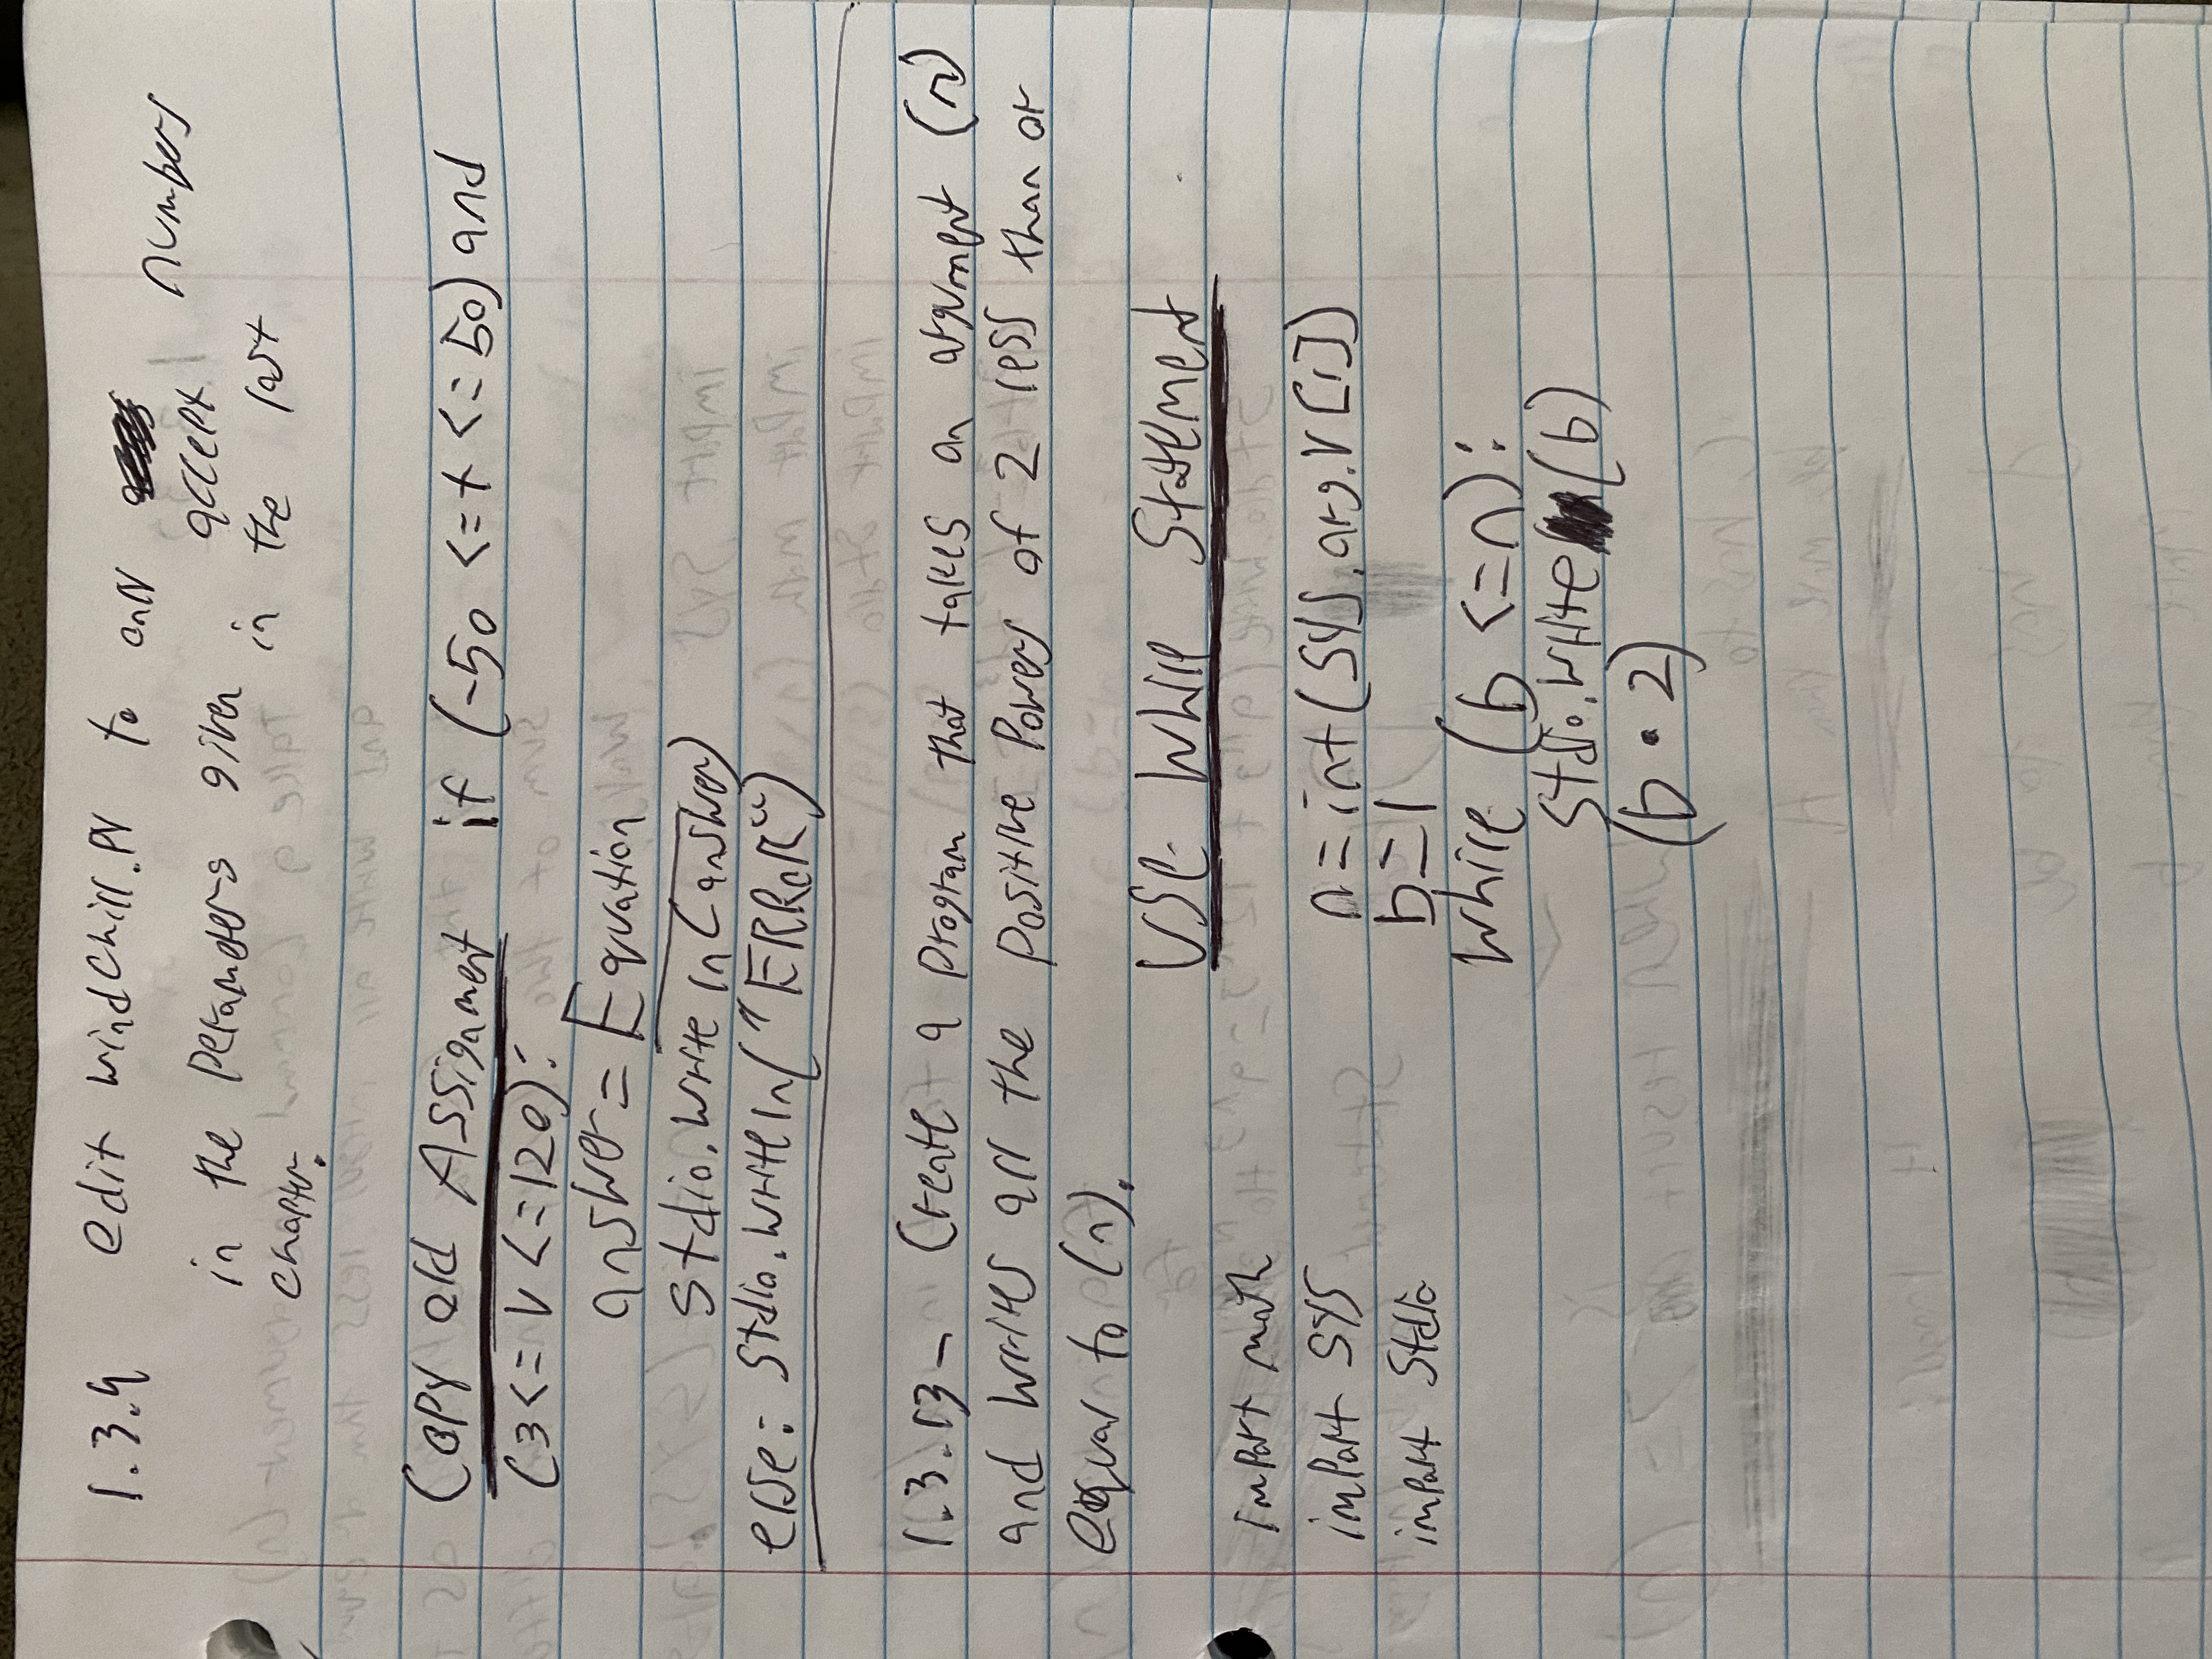 1.3.9 edit windchill.py to only numbers
accept
in the Perameters given in the last
chapter.
Copy old Assignment if (-50 <= t <= 50) and
(3 <= V <= 120):
answer = Equation
stdio.writeln(answer)
else: stdio.writeln("ERROR")
1.3.13 - Create a program that takes an argument (n)
and writes all the positive powers of 2 less than or
equal to (n).
Use while Statement
import math
import sys n = int(sys.arg.v[1])
import stdio b = 1
while (b <= n):
stdio.write(b)
(b • 2)